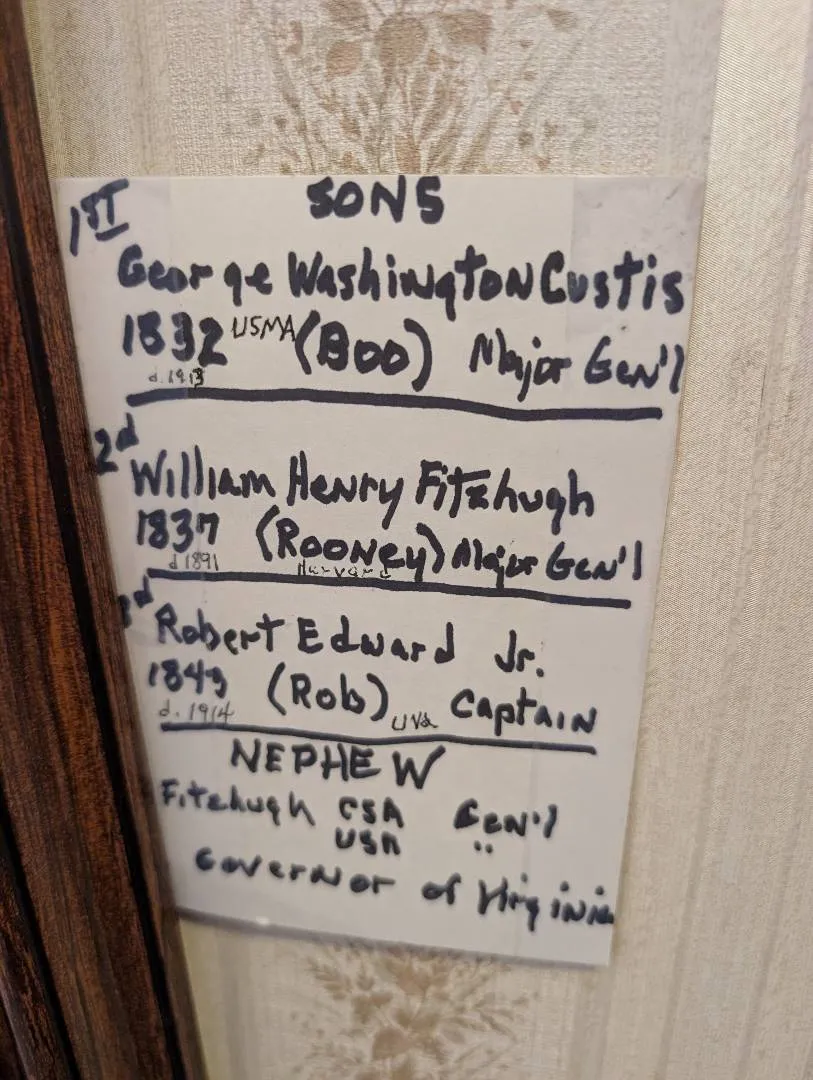 SONS
1ST
George Washington Custis
1832 USMA (Boo) Major Gen'l
d. 1913
2d
William Henry Fitzhugh
1837 (Rooney) Major Gen'l
d 1891 Harvard
3d
Robert Edward Jr.
1843 (Rob) UVa Captain
d. 1914
NEPHEW
Fitzhugh CSA Gen'l
USA "
Governor of Virginia